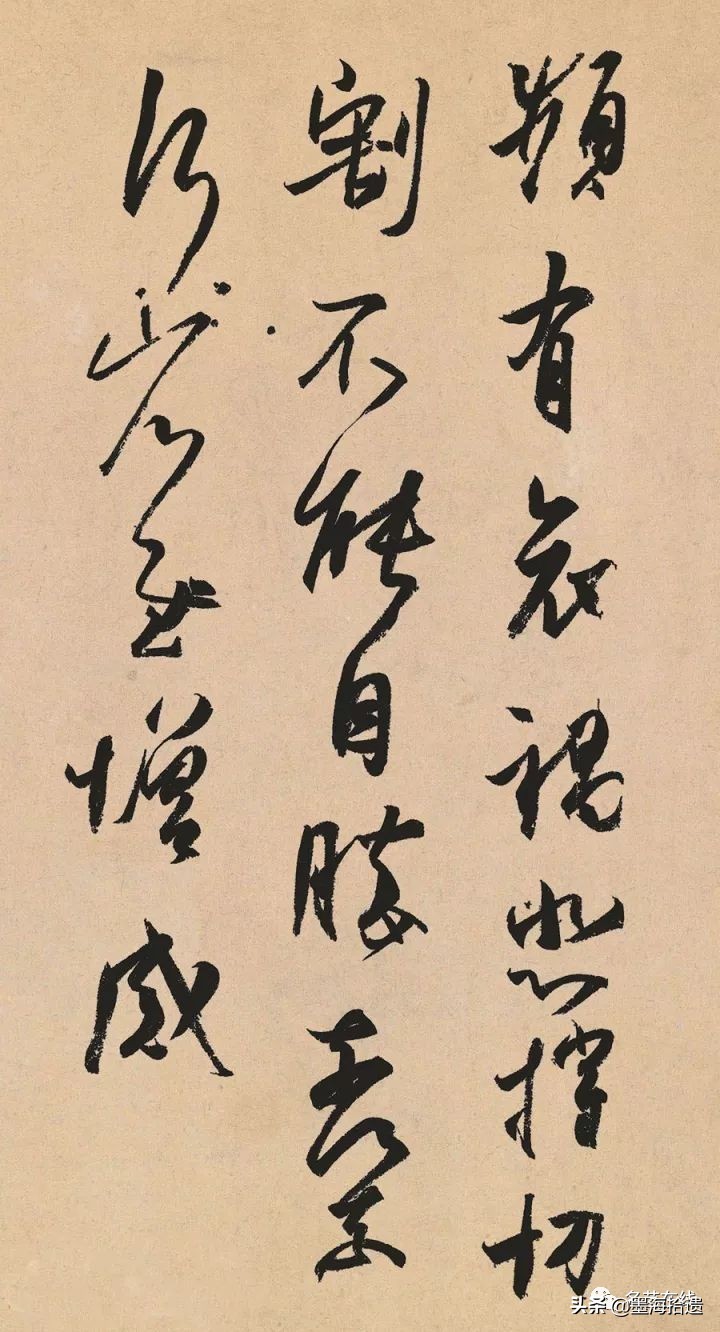 頻有哀禍悲摧切
割不能自勝奈何奈
何省慰增感
头条 @墨海拾遗